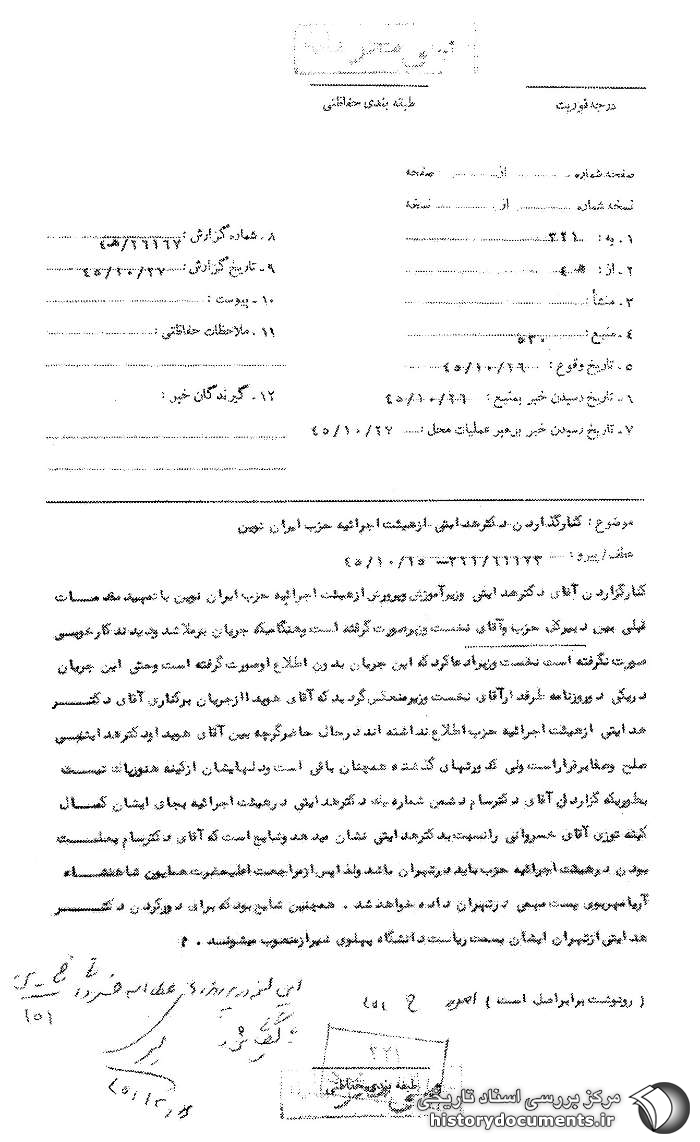 درجه فوریت
طبقه بندی حفاظتی
صفحه شماره ........ از ........ صفحه
نسخه شماره ........ از ........ نسخه
۱ـ به : ۳۲۱
۲ـ از : ۴ ه
۳ـ منشأ :
۴ـ منبع : ۵۳۰
۵ـ تاریخ وقوع : ۴۵/۱۰/۲۶
۶ـ تاریخ رسیدن خبر بمنبع : ۴۵/۱۰/۲۶
۷ـ تاریخ رسیدن خبر برهبر عملیات محل : ۴۵/۱۰/۲۷
۸ـ شماره گزارش : ۲۶۱۶۷/ه۴
۹ـ تاریخ گزارش : ۴۵/۱۰/۲۷
۱۰ـ پیوست :
۱۱ـ ملاحظات حفاظتی :
۱۲ـ گیرندگان خبر :
موضوع : کنارگذاردن دکترهدایتی ازهیئت اجرائیه حزب ایران نوین
عطف / پیرو : ۴۵/۱۰/۲۵
کنارگزاردن آقای دکترهدایتی وزیرآموزش وپرورش ازهیئت اجرائیه حزب ایران نوین با تمهید مقدمات
قبلی بین دبیرکل حزب وآقای نخست وزیرصورت گرفته است وهنگامیکه جریان برملاشد ودیدند کارخوبی
صورت نگرفته است نخست وزیرادعاکرد که این جریان بدون اطلاع اوصورت گرفته است وحتی این جریان
دریکی دوروزنامه طرفدارآقای نخست وزیرمنعکس گردید که آقای هویدا ازجریان برکناری آقای دکتر
هدایتی ازهیئت اجرائیه حزب اطلاع نداشته اند درحال حاضرگرچه بین آقای هویدا ودکترهدایتی
صلح وصفا برقراراست ولی کدورتهای گذشته همچنان باقی است ودلهایشان ازکینه هنوزپاک نیست
بطوریکه گزاردن آقای دکترسام دشمن شماره یک دکترهدایتی درهیئت اجرائیه بجای ایشان کمال
کینه توزی آقای خسروانی رانسبت بدکترهدایتی نشان میدهد وشایع است که آقای دکترسام بعلت
بودن درهیئت اجرائیه حزب باید درتهران باشد ولذا پس ازمراجعت اعلیحضرت همایون شاهنشاه
آریامهرپوی پست مهمی درتهران داده خواهد شد . همچنین شایع بود که برای دورکردن دکتر
هدایتی ازتهران ایشان بسمت ریاست دانشگاه پهلوی شیرازمنصوب میشوند . م
( رونوشت برابراصل است )
۳۲۱
طبقه بندی حفاظتی
مرکز بررسی اسناد تاریخی
historydocuments.ir